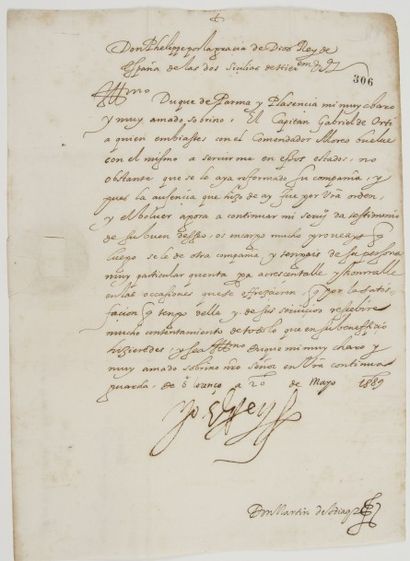 Don Phelippe por la gracia de Dios Rey de
España de las dos Sicilias de Hierusalem &
306
Illmo
Duque de Parma y Plasencia mi muy charo
y muy amado sobrino: El Capitan Gabriel de Orti
a quien embiastes con el Comendador Moreo buelue
con el mismo a seruirme en essos estados, no
obstante que se le aya reformado su compañia, y
pues la ausencia que hizo de ay fue por vra orden,
y el boluer agora a continuar mi seruio da testimonio
de su buen desseo, os encargo mucho proueays q
luego se le de otra compañia y tengais de su persona
muy particular quenta pa acrescentalle y honrralle
en las occasiones que se offrezieren, q por la satis-
facion q tengo della y de sus seruicios rescibire
mucho contentamiento de todo lo que en su beneficio
hizieredes, y sea Illmo Duque mi muy charo y
muy amado sobrino nro Señor en vra continua
guarda, de 20 de Mayo 1589
Yo el Rey
Don Martin de Idiaquez